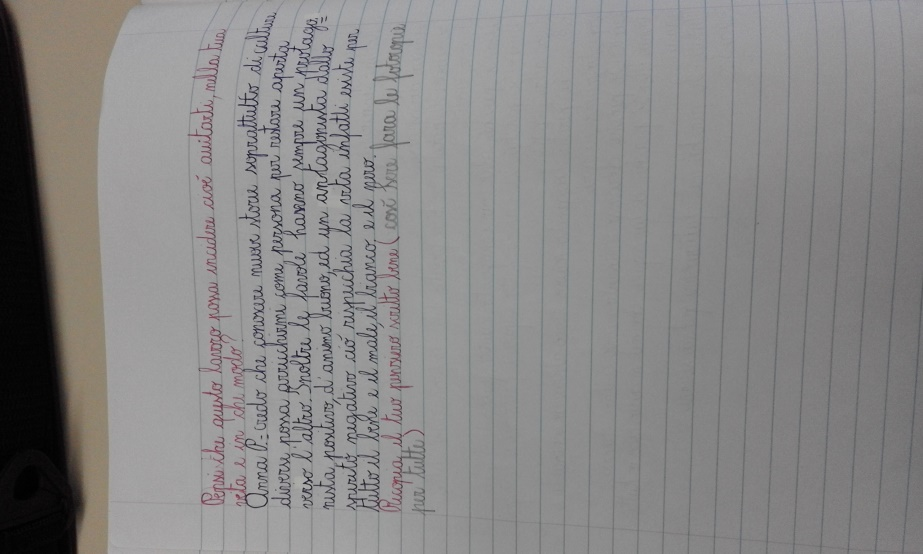 Pensi che questo lavoro possa incidere cioé aiutarti, nella tua
vita e in che modo?
Anna P.- Credo che conoscere nuove storie soprattutto di culture
diverse possa arricchirmi come persona per restare aperta
verso l'altro. Inoltre le favole hanno sempre un protago=
nista positivo, d'animo buono, ed un antagonista dallo
spirito negativo ciò rispecchia la vita infatti esiste per
tutto il bene e il male, il bianco e il nero.
Ricopia il tuo pensiero scritto bene (così Irene farà le fotocopie
per tutte)